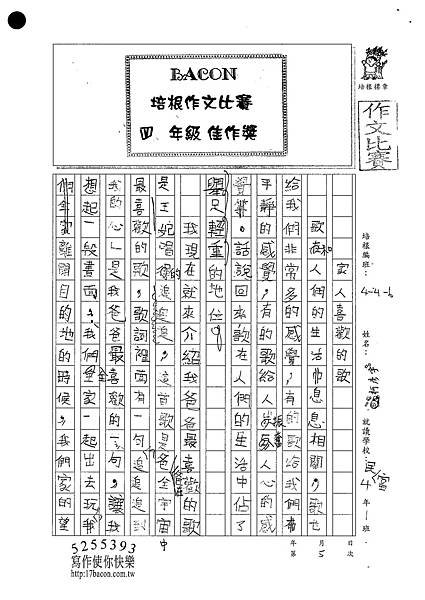 BACON
培根作文比賽
四 年級佳作獎
培根標章
作文比賽
培根編班：4-4-6
姓名：
就讀學校：民富
4年1班
月5次
年 第
家人喜歡的歌
歌和人們的生活息息相關，歌也
給我們非常多的感覺，有的歌給我們
平靜的感覺，有的歌給人振奮人心的感
覺。話說回來歌在人們的生活中佔了
舉足輕重的地位。
我現在就來介紹我爸爸最喜歡的歌
是王妃唱的追追追，這首歌是爸爸全宇宙
最喜歡的歌，歌詞裡面有一句追追追到
我的心是我爸爸最喜歡的一句，讓我
想起一段畫面，我們全家一起出去玩，我
們全家離開目的地的時候，我們家的望
5255393
中
寫作使你快樂
http://17bacon.com.tw